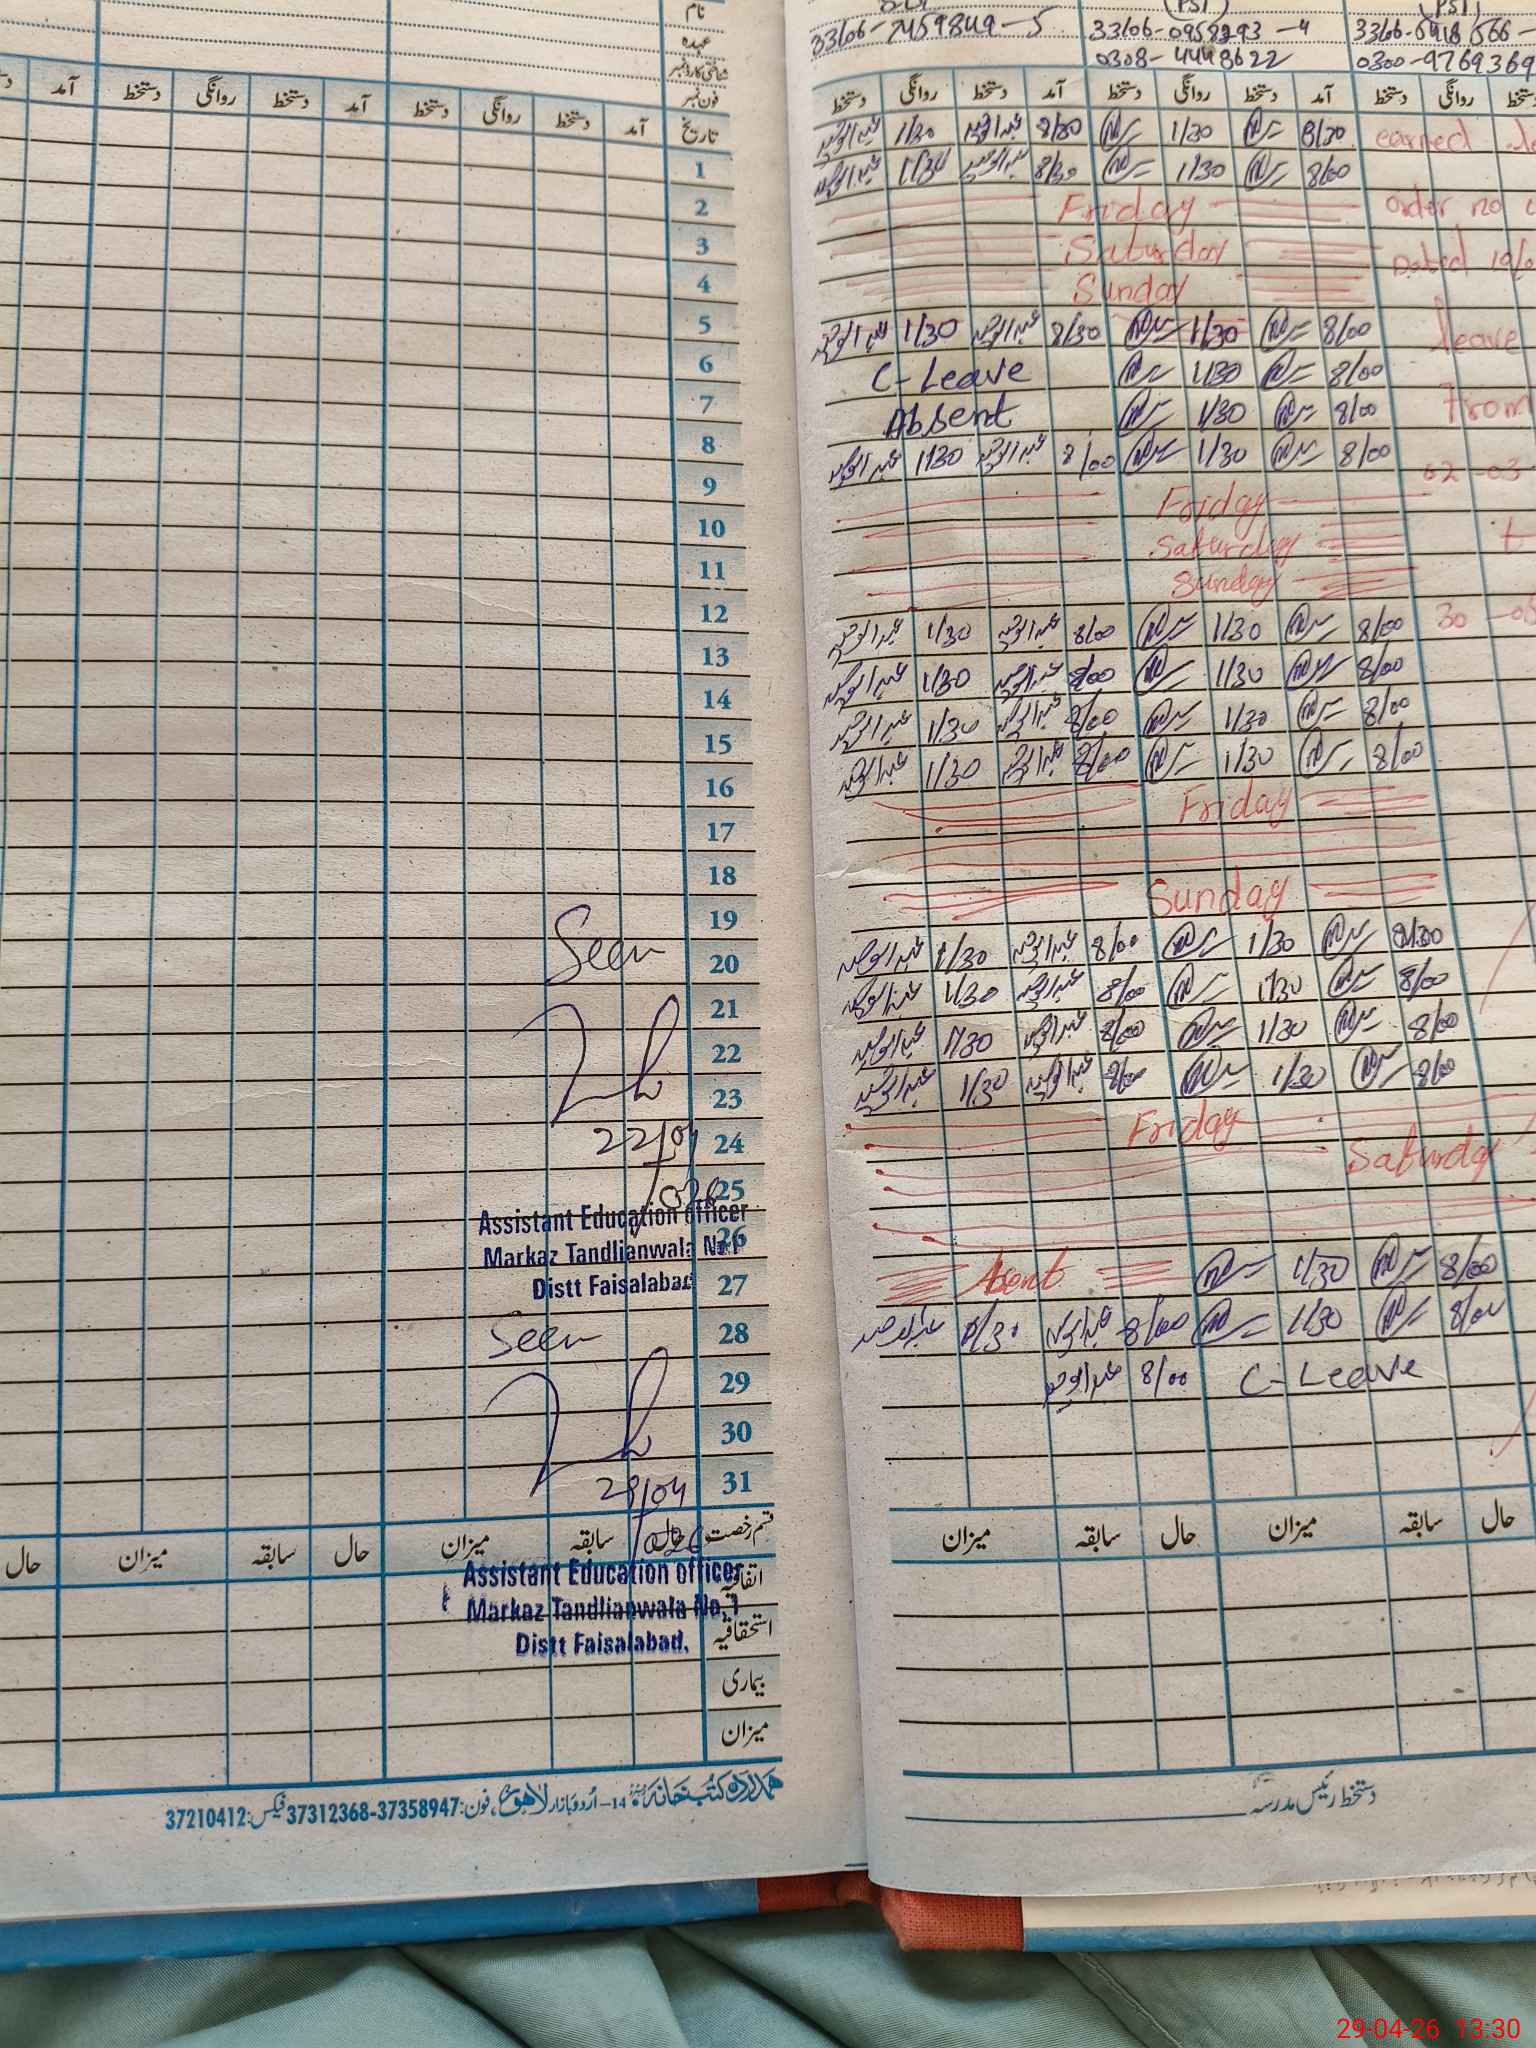 نام
عہدہ
شناختی کارڈ نمبر
فون نمبر
آمد دستخط روانگی دستخط آمد دستخط روانگی دستخط آمد
تاریخ
1
2
3
4
5
6
7
8
9
10
11
12
13
14
15
16
17
18
19
20
21
22
23
24
25
26
27
28
29
30
31
Seen
22/04
Assistant Education officer
Markaz Tandlianwala No.1
Distt Faisalabad
Seen
29/04
Assistant Education officer
Markaz Tandlianwala No.1
Distt Faisalabad.
قسم رخصت حال سابقہ میزان حال سابقہ میزان حال
اتفاقیہ
استحقاقیہ
بیماری
میزان
ہمدرد کتب خانہ 14-اُردو بازار لاہور، فون: 37358947-37312368 فیکس: 37210412
PST PST
33106-7459849-5 33106-0958293-4
0308-4448622 0300-9769369
دستخط روانگی دستخط آمد دستخط روانگی دستخط آمد دستخط روانگی دستخط
عبدالوحید 1/30 عبدالوحید 8/30 1/30 8/30 earned
عبدالوحید 1/30 عبدالوحید 8/30 1/30 8/00
Friday order no
Saturday Dated
Sunday
عبدالوحید 1/30 عبدالوحید 8/30 1/30 8/00 leave
C-Leave 1/30 8/00
Absent 1/30 8/00 From
عبدالوحید 1/30 عبدالوحید 8/00 1/30 8/00
02-03
Friday
Saturday
Sunday
عبدالوحید 1/30 عبدالوحید 8/00 1/30 8/00 30
عبدالوحید 1/30 عبدالوحید 8/00 1/30 8/00
عبدالوحید 1/30 عبدالوحید 8/00 1/30 8/00
عبدالوحید 1/30 عبدالوحید 8/00 1/30 8/00
Friday
Sunday
عبدالوحید 1/30 عبدالوحید 8/00 1/30 8/30
عبدالوحید 1/30 عبدالوحید 8/00 1/30 8/00
عبدالوحید 1/30 عبدالوحید 8/00 1/30 8/00
عبدالوحید 1/30 عبدالوحید 8/00 1/30 8/00
Friday
Saturday
Absent 1/30 8/00
عبدالوحید 1/30 عبدالوحید 8/00 1/30 8/00
عبدالوحید 8/00 C-Leave
میزان سابقہ حال میزان سابقہ حال
دستخط رئیس مدرسہ
29-04-26 13:30